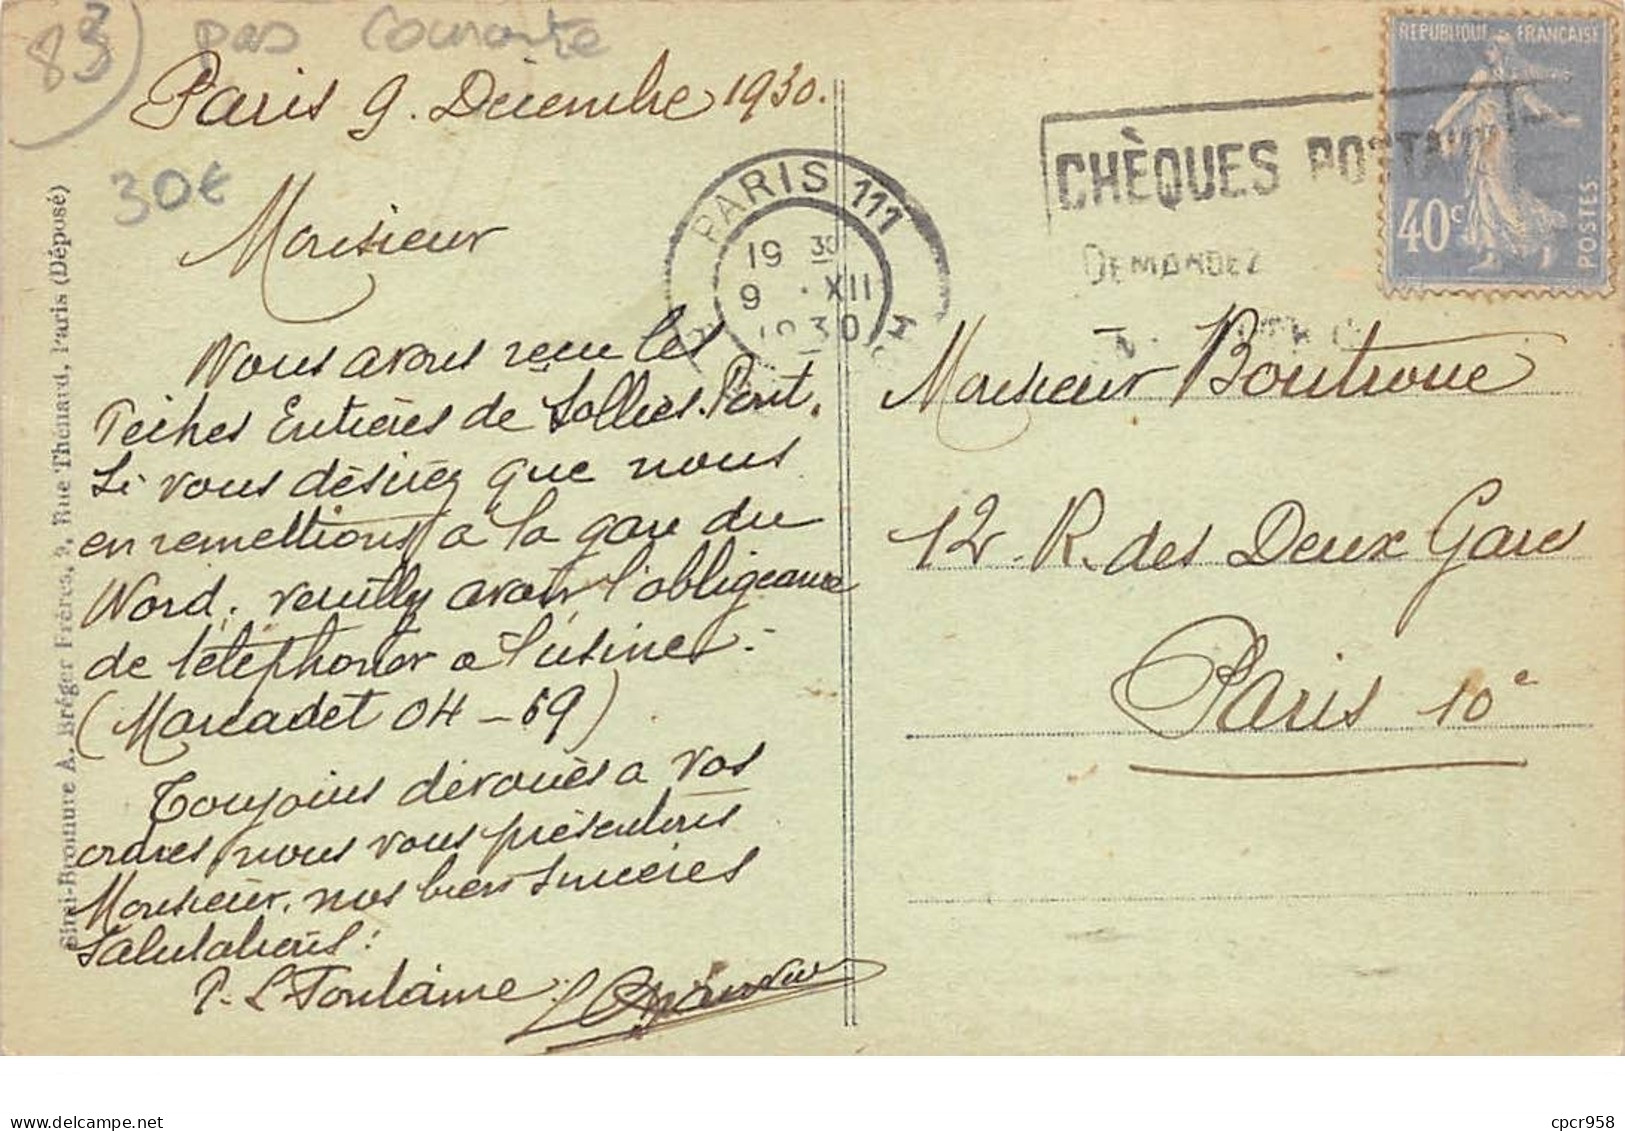 83) pas courante
Paris 9. Décembre 1930.
30€
Monsieur
Nous avons reçu les
Pêches Entières de Solliès-Pont.
Si vous désirez que nous
en remettions à la gare du
Nord, veuillez avoir l'obligeance
de téléphoner à l'usine.
(Marcadet 04-69)
Toujours dévoués à vos
ordres, nous vous présentons
Monsieur, nos bien sincères
salutations:
P. L. Fontaine
Simi-Bromure A. Bréger Frères, 9, Rue Thénard, Paris (Déposé)
PARIS 111
19 30
9 . XII
1930
CHÈQUES POSTAUX
DEMANDEZ
REPUBLIQUE FRANÇAISE
40c
POSTES
Monsieur Boutroue
12 R. des Deux Gares
Paris 10e
Delcampe.net
cpcr958